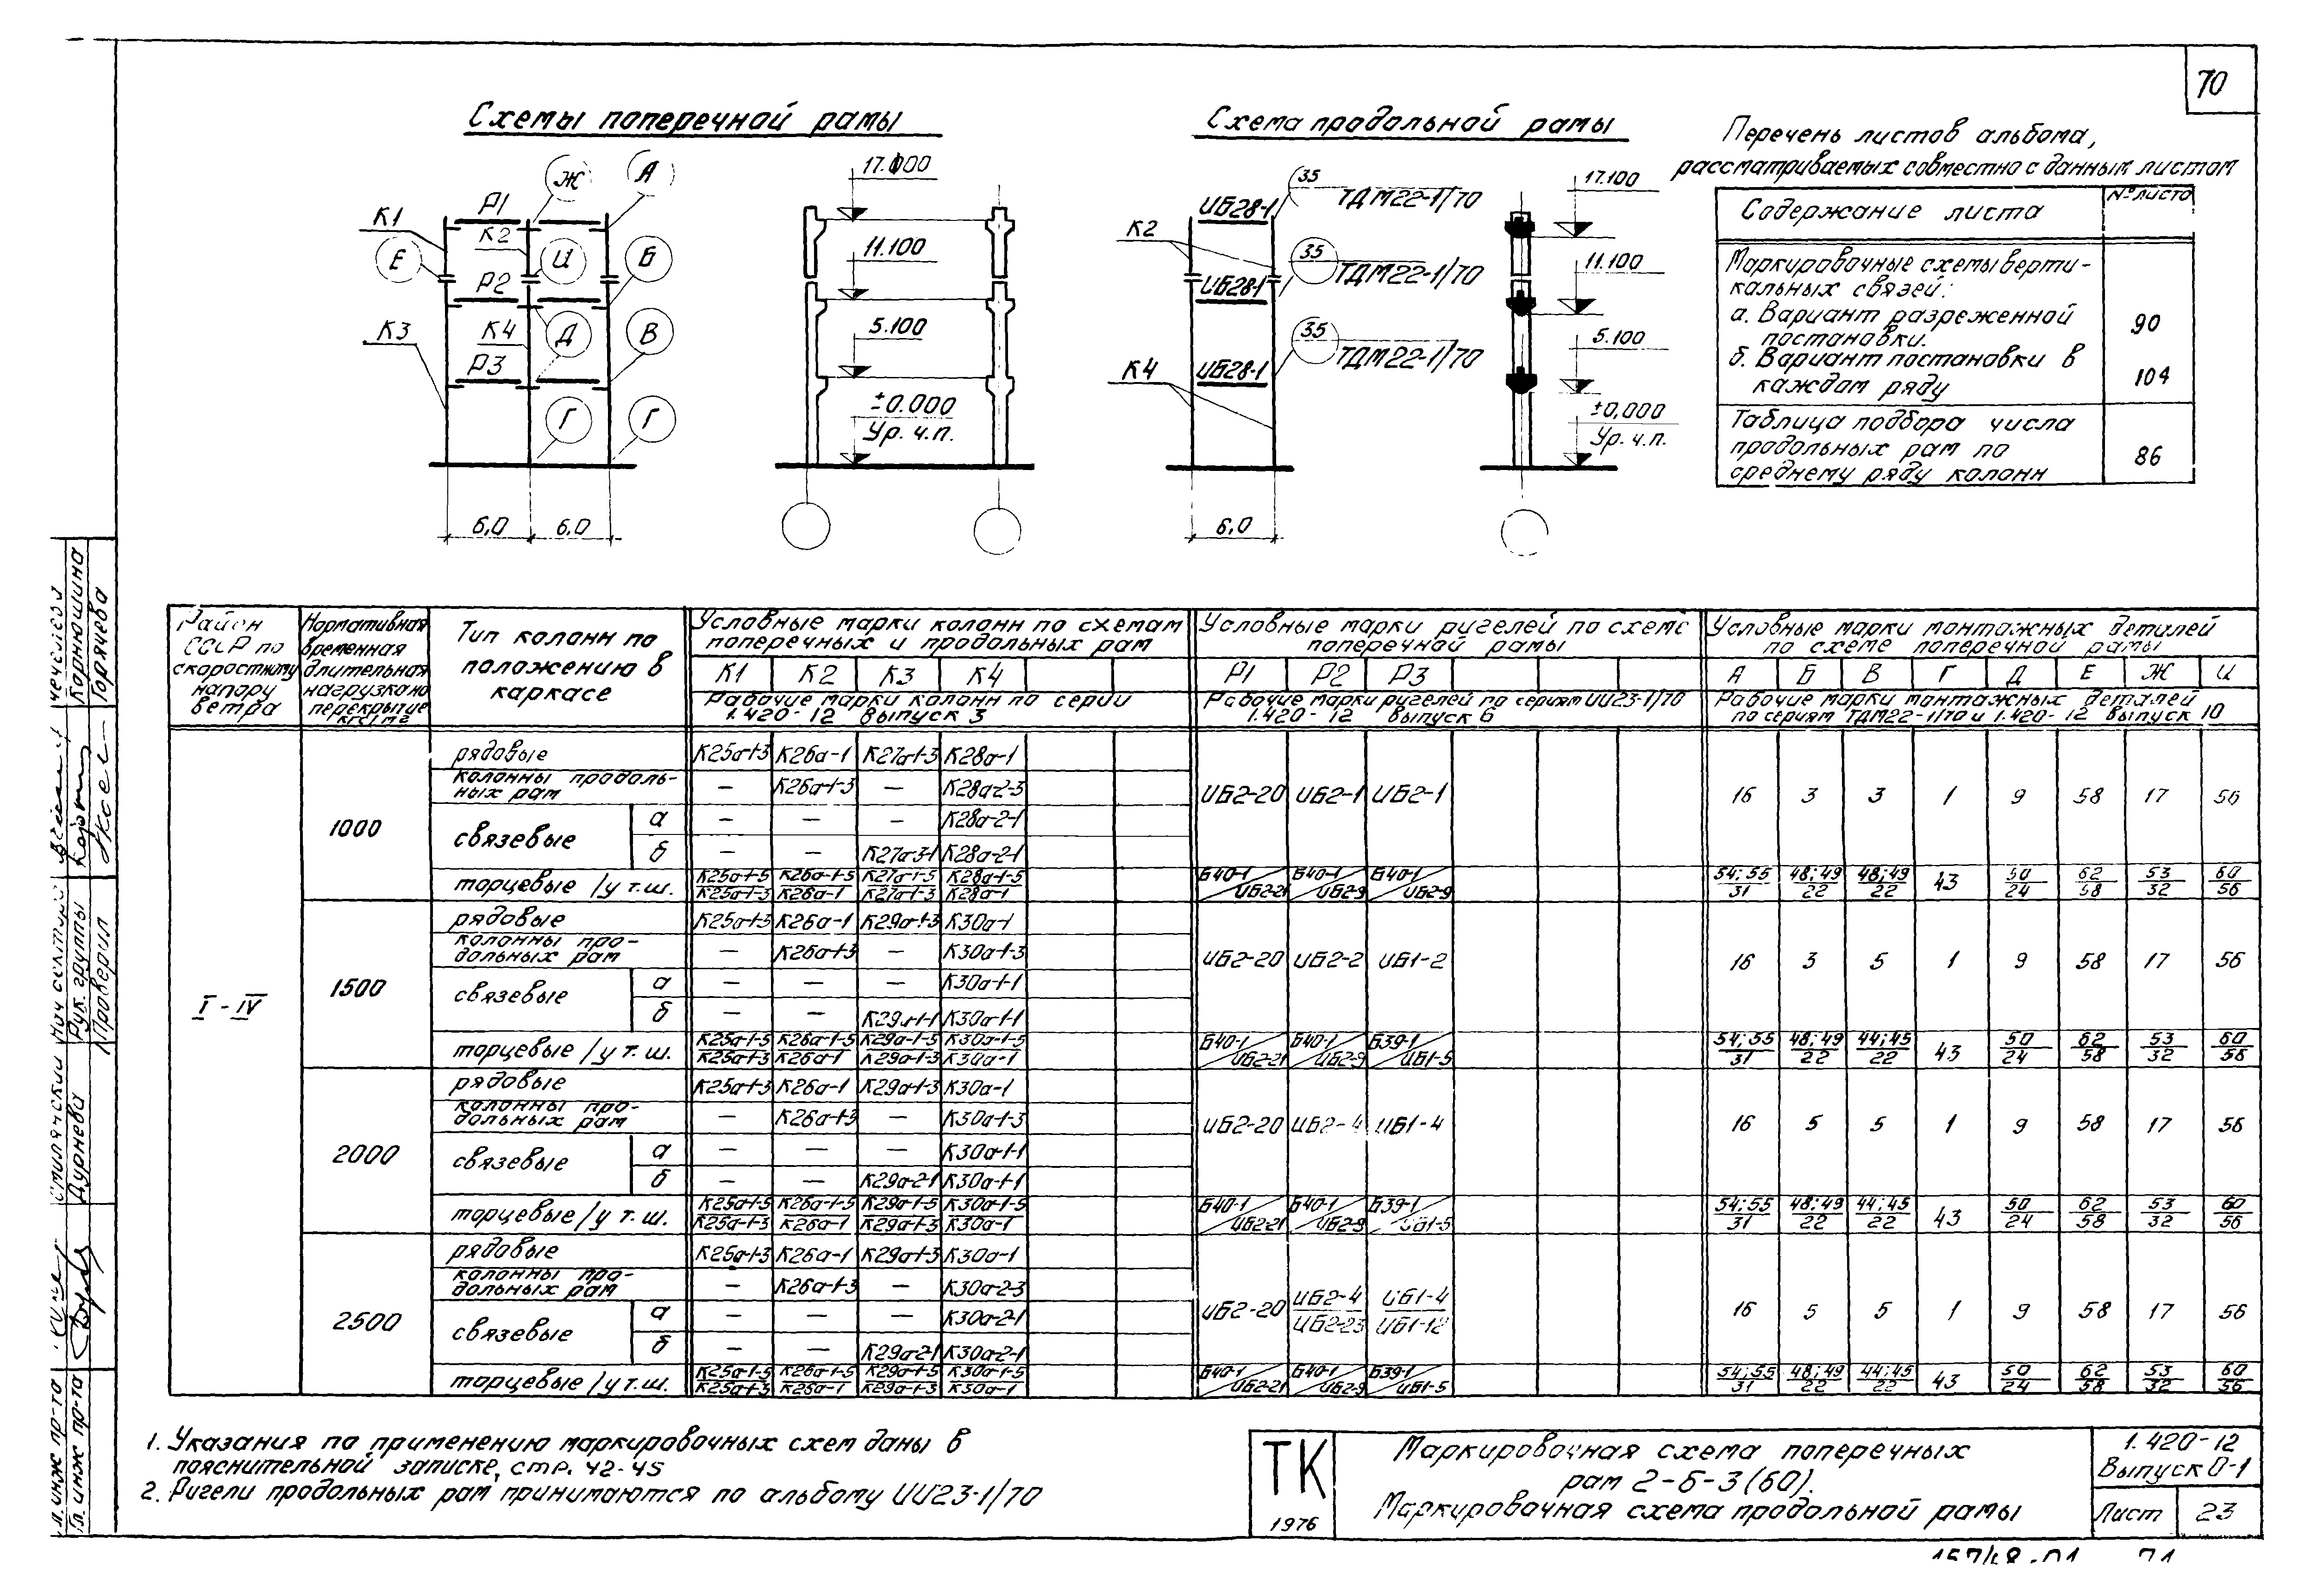 70
Схемы поперечной рамы
Схема продольной рамы
Перечень листов альбома,
рассматриваемых совместно с данным листом
Содержание листа
№ листа
Маркировочные схемы верти-
кальных связей:
а. Вариант разреженной
постановки.
90
б. Вариант постановки в
каждом ряду
104
Таблица подбора числа
продольных рам по
среднему ряду колонн
86
Ж
А
К1
Р1
К2
Е
И
Б
Р2
К3
К4
Д
В
Р3
Г
Г
6,0
6,0
17.100
11.100
5.100
±0.000
Ур. ч.п.
ИБ28-1
35
ТДМ22-1/70
К2
ИБ28-1
35
ТДМ22-1/70
К4
ИБ28-1
35
ТДМ22-1/70
6,0
17.100
11.100
5.100
±0,000
Ур. ч.п.
Район
СССР по
скоростному
напору
ветра
Нормативная
временная
длительная
нагрузка на
перекрытие
кгс/м2
Тип колонн по
положению в
каркасе
Условные марки колонн по схемам
поперечных и продольных рам
К1 К2 К3 К4
Рабочие марки колонн по серии
1.420-12 выпуск 3
Условные марки ригелей по схеме
поперечной рамы
Р1 Р2 Р3
Рабочие марки ригелей по сериям ИИ23-1/70
1.420-12 выпуск 6
Условные марки монтажных деталей
по схеме поперечной рамы
А Б В Г Д Е Ж И
Рабочие марки монтажных деталей
по сериям ТДМ22-1/70 и 1.420-12 выпуск 10
I - IV
1000
рядовые К25а-1-3 К26а-1 К27а-1-3 К28а-1
колонны продоль-
ных рам — К26а-1-3 — К28а-2-3
ИБ2-20 ИБ2-1 ИБ2-1
16 3 3 1 9 58 17 56
связевые
а — — — К28а-2-1
б — — К27а-3-1 К28а-2-1
торцевые / у т.ш.
К25а-1-5 К26а-1-5 К27а-1-5 К28а-1-5
К25а-1-3 К26а-1 К27а-1-3 К28а-1
Б40-1/ИБ2-21 Б40-1/ИБ2-9 Б40-1/ИБ2-9
54;55/31 48;49/22 48;49/22 43 50/24 62/58 53/32 60/56
1500
рядовые К25а-1-3 К26а-1 К29а-1-3 К30а-1
колонны про-
дольных рам — К26а-1-3 — К30а-1-3
ИБ2-20 ИБ2-2 ИБ1-2
16 3 5 1 9 58 17 56
связевые
а — — — К30а-1-1
б — — К29а-1-1 К30а-1-1
торцевые / у т.ш.
К25а-1-5 К26а-1-5 К29а-1-5 К30а-1-5
К25а-1-3 К26а-1 К29а-1-3 К30а-1
Б40-1/ИБ2-21 Б40-1/ИБ2-9 Б39-1/ИБ1-5
54;55/31 48;49/22 44;45/22 43 50/24 62/58 53/32 60/56
2000
рядовые К25а-1-3 К26а-1 К29а-1-3 К30а-1
колонны про-
дольных рам — К26а-1-3 — К30а-1-3
ИБ2-20 ИБ2-4 ИБ1-4
16 5 5 1 9 58 17 56
связевые
а — — — К30а-1-1
б — — К29а-2-1 К30а-1-1
торцевые / у т.ш.
К25а-1-5 К26а-1-5 К29а-1-5 К30а-1-5
К25а-1-3 К26а-1 К29а-1-3 К30а-1
Б40-1/ИБ2-21 Б40-1/ИБ2-9 Б39-1/ИБ1-5
54;55/31 48;49/22 44;45/22 43 50/24 62/58 53/32 60/56
2500
рядовые К25а-1-3 К26а-1 К29а-1-3 К30а-1
колонны про-
дольных рам — К26а-1-3 — К30а-2-3
ИБ2-20 ИБ2-4/ИБ2-23 ИБ1-4/ИБ1-12
16 5 5 1 9 58 17 56
связевые
а — — — К30а-2-1
б — — К29а-2-1 К30а-2-1
торцевые / у т.ш.
К25а-1-5 К26а-1-5 К29а-1-5 К30а-1-5
К25а-1-3 К26а-1 К29а-1-3 К30а-1
Б40-1/ИБ2-21 Б40-1/ИБ2-9 Б39-1/ИБ1-5
54;55/31 48;49/22 44;45/22 43 50/24 62/58 53/32 60/56
1. Указания по применению маркировочных схем даны в
пояснительной записке, стр. 42-45
2. Ригели продольных рам принимаются по альбому ИИ23-1/70
ТК
1976
Маркировочная схема поперечных
рам 2-6-3(60).
Маркировочная схема продольной рамы
1.420-12
Выпуск 0-1
Лист 23
Корнюшина
Горячева
Рук. группы
Проверил
Смилянский
Дурнева
Гл. инж пр-та
71